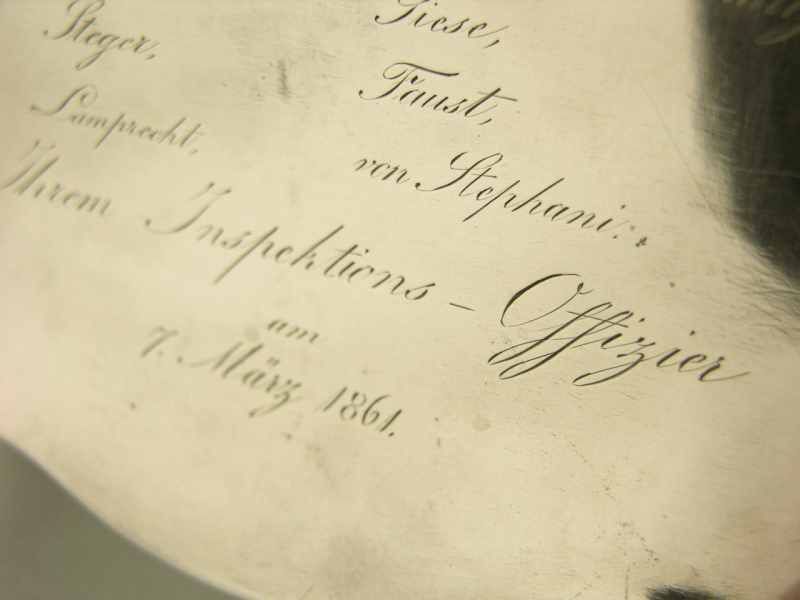 Steger,
Lamprecht,
Giese,
Faust,
von Stephani.
Ihrem Inspektions - Offizier
am
7. März 1861.